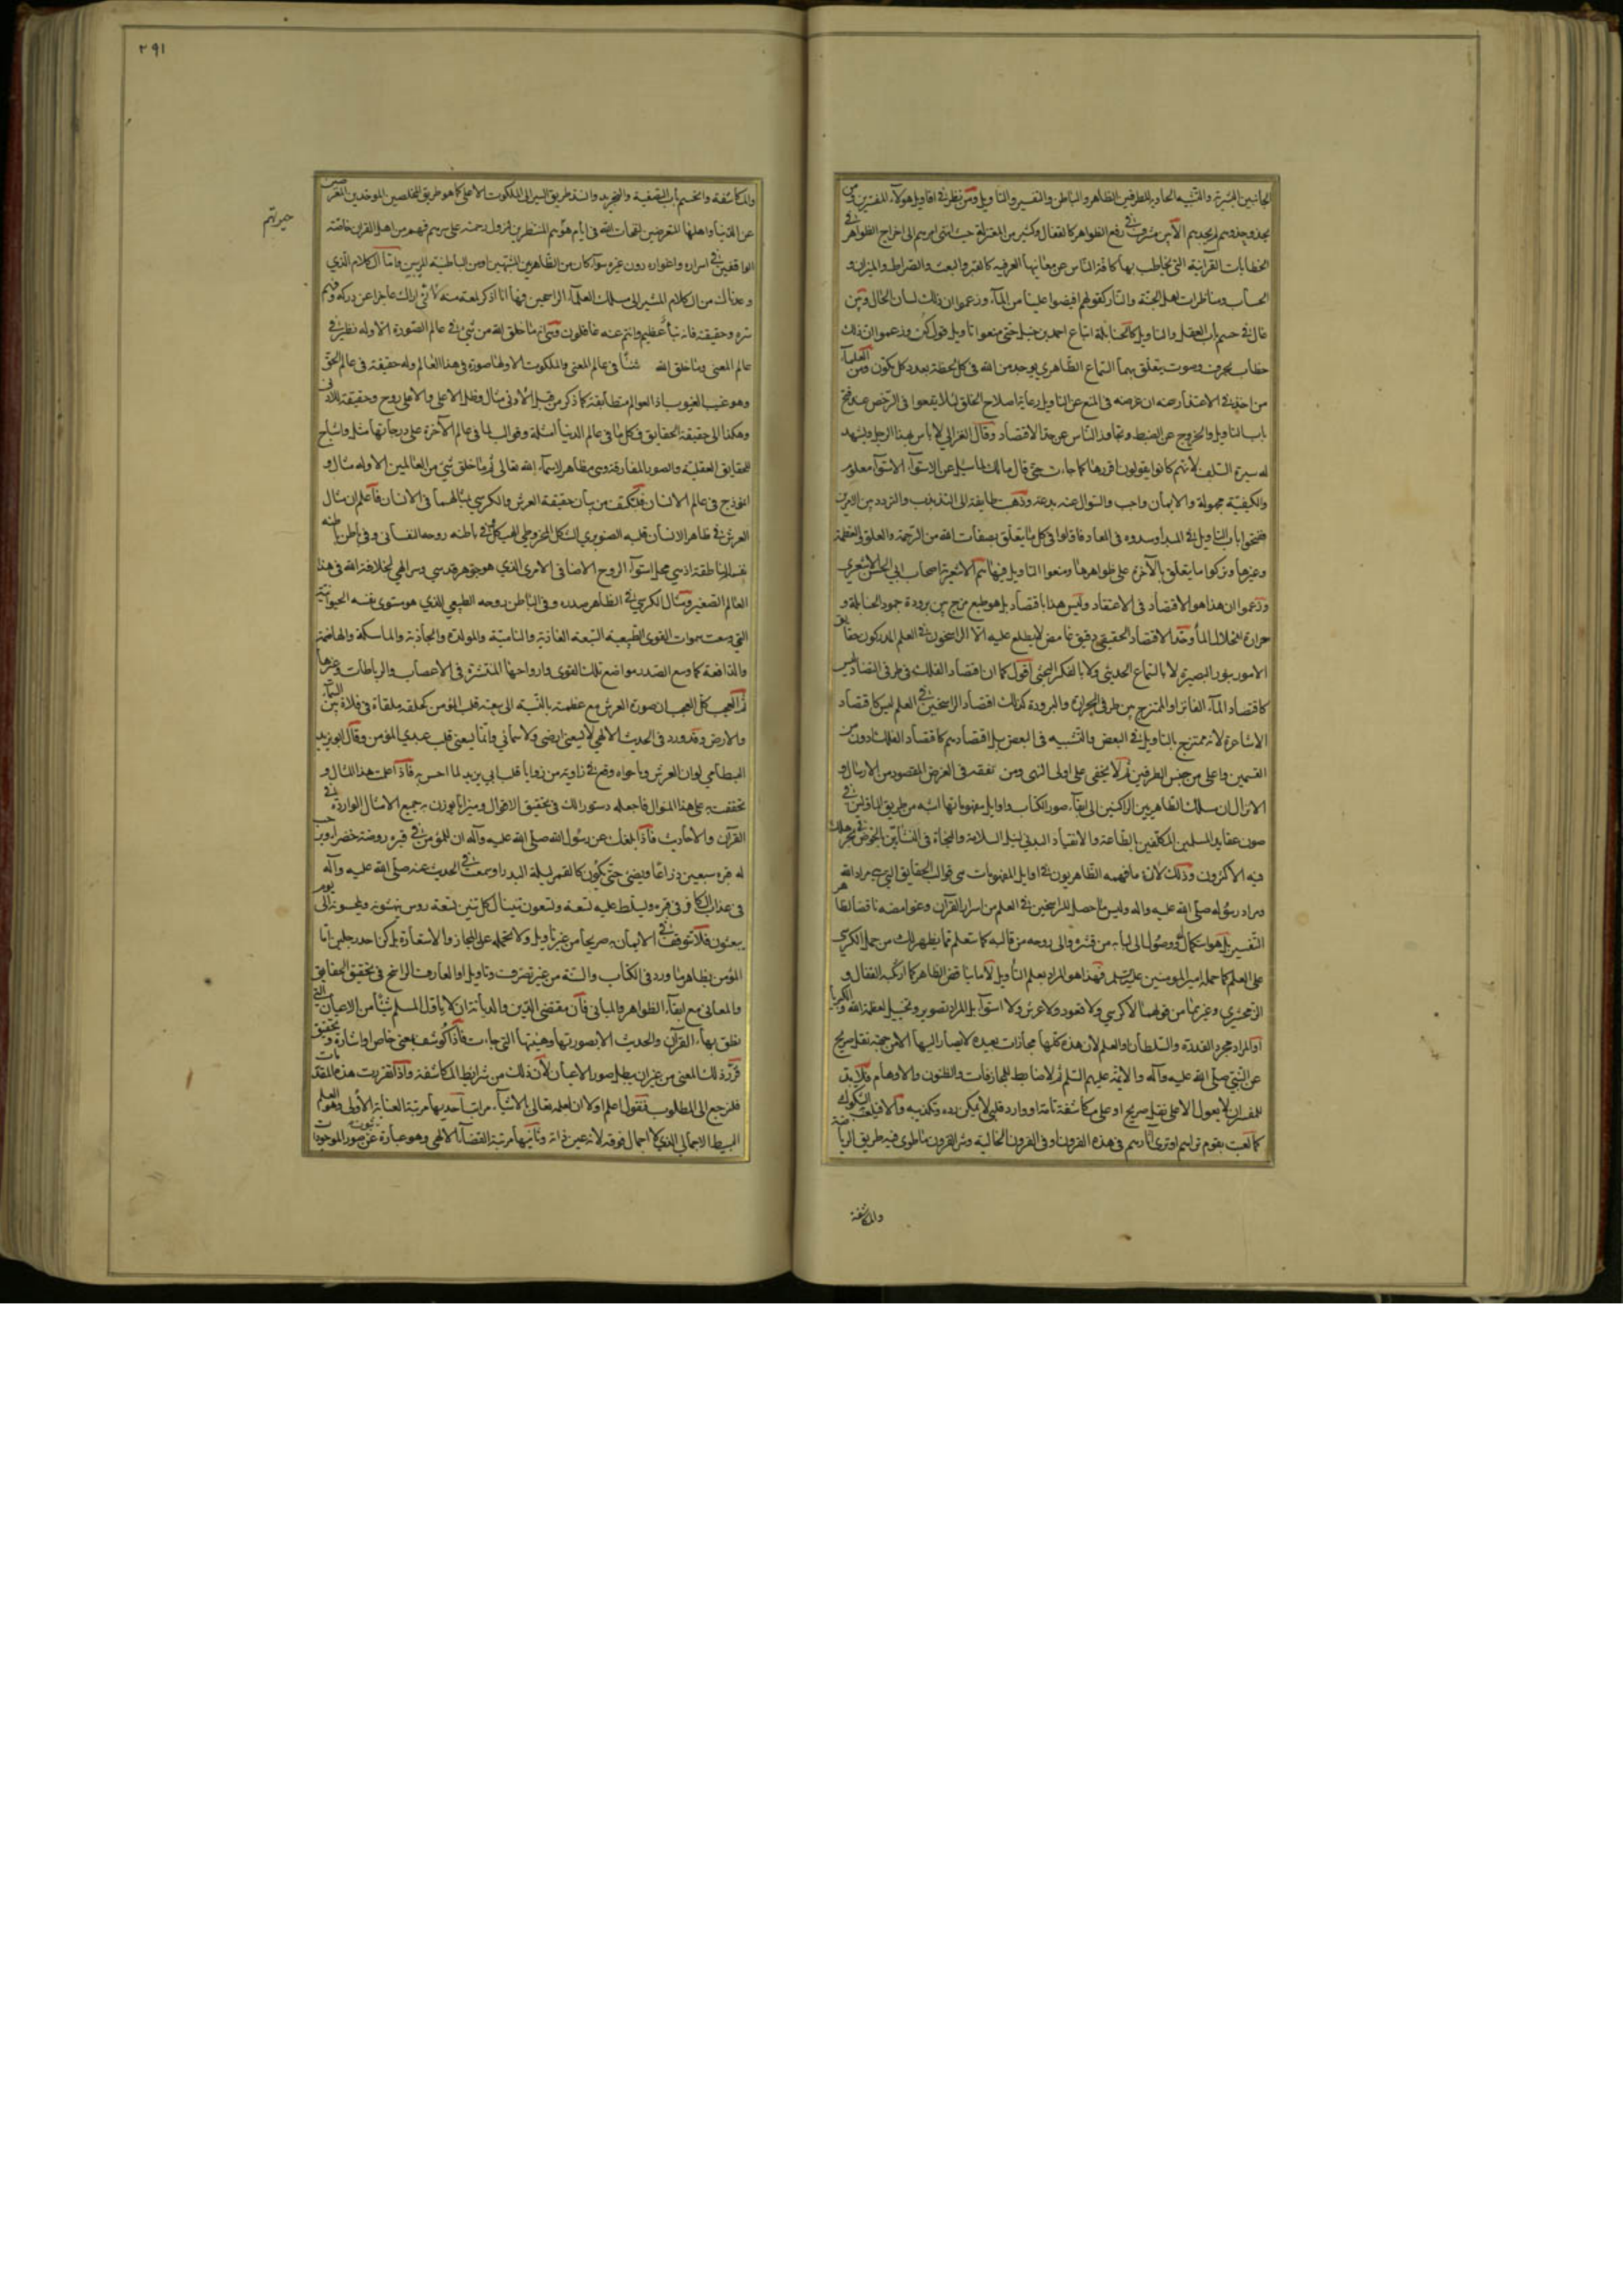 الجانبين
والتشبيه الحاوية للطرفين الظاهر والباطن والتفسير والتاويل ومن نظر في اقاويل هؤلاء المفسرين
في رفع الظواهر كالقفال وكثير من المعتزلة حيث انتهى امرهم الى اخراج الظواهر في
الخطابات القرآنية التي يخاطب بها كافة الناس عن معانيها العرفية كالقبر والبعث والصراط والميزان و
الحساب ومناظرات اهل الجنة والنار كقولهم افيضوا علينا من الماء وزعموا ان ذلك لسان الحال ومن
غال في حسم باب العقل والتاويل كالحنابلة اتباع احمد بن حنبل حتى منعوا تاويل قول كن وزعموا ان ذلك
خطاب بحرف وصوت يتعلق بهما السماع الظاهري يوجد من الله في كل لحظة بعدد كل مكون ومن العلماء
من اخذ في الاعتذار عنه ان غرضه في المنع عن التاويل رعاية اصلاح الخلق لئلا يقعوا في الرخص عند فتح
باب التاويل والخروج عن الضبط وتجاوز الناس عن حد الاقتصاد وقال الغزالي لا باس بهذا الزجل ويشهد
له سيرة السلف لانهم كانوا يقولون اقروها كما جاءت حتى قال مالك لما سئل عن الاستواء الاستواء معلوم
والكيفية مجهولة والايمان واجب والسؤال عنه بدعة وذهب طايفة الى التذبذب والتردد بين الامرين
ففتحوا باب التاويل في المبدأ وسدوه في المعاد فاولوا في كل ما يتعلق بصفات الله من الرحمة والعلو والعظمة
وغيرها وتركوا ما يتعلق بالآخرة على ظواهرها ومنعوا التاويل فيها هم الاشعرية اصحاب ابي الحسن الاشعري
وزعموا ان هذا هو الاقتصاد في الاعتقاد وليس هذا باقتصاد بل هو طبع مزج من برودة جمود الحنابلة و
حرارة انحلال المأولة وحد الاقتصاد الحقيقي دقيق غامض لا يطلع عليه الا الراسخون في العلم المدركون حقايق
الامور بنور البصيرة لا بالسماع الحديثي ولا بالفكر البحثي اقول كما ان اقتصاد الفلك في طرفي التضاد ليس
كاقتصاد الماء الفاتر او الممتزج بين طرفي الحرارة والبرودة كذلك اقتصاد الراسخين في العلم ليس كاقتصاد
الاشاعرة لانه ممتزج بالتاويل في البعض والتشبيه في البعض بل اقتصادهم كاقتصاد الفلك دون
القسمين واعلى من جنس الطرفين ثم لا يخفى على اولي النهى ومن تفقه في الغرض المقصود من الارسال و
الانزال ان مسلك الظاهريين الراكنين الى ابقاء صور الكتاب واوايل مفهوماتها اشبه من طريق الماولين في
صون عقايد المسلمين المكلفين بالطاعة والانقياد البدني لنيل السلامة والنجاة في النشأتين بالخوض في بحر هلك
فيه الاكثرون وذلك لان ما فهمه الظاهريون في اوايل المفهومات هي قوالب الحقايق التي هي مراد الله
ومراد رسوله صلى الله عليه وآله وليس ما حصل للراسخين في العلم من اسرار القرآن وغوامضه ناقضا لظاهر
التفسير بل هو استكمال له ووصول الى لبابه من قشره والى روحه من قالبه كما ستعلم مما يظهر لك من حمل الكرسي
على العلم كما حمله امير المؤمنين عليه السلم فهذا هو المراد بعلم التاويل لا ما يناقض الظاهر كما ارتكبه القفال و
الزمخشري وغيرهما من قولهما لا كرسي ولا قعود ولا عرش ولا استواء بل المراد تصوير وتخييل لعظمة الله والكبرياء
او المراد مجرد القدرة والسلطان او العلم لان هذه كلها مجازات بعيدة لا يصار اليها الا من جهة نقل صريح
عن النبي صلى الله عليه وآله والائمة عليهم السلم ثم لا ضابط للمجازفات والظنون والاوهام فلا بد
للمفسر ان لا يعول الا على نقل صريح او على مكاشفة تامة او وارد قلبي لا يمكن رده وتكذيبه والا فيلعب به الشكوك
كما لعبت بقوم تراهم او ترى آثارهم في هذه القرون او في القرون الخالية وشر القرون ما طوى فيه طريق الرياضة
والمكاشفة
٢٩١
والمكاشفة وانحسم باب التصفية والتجريد وانسد طريق السير الى الملكوت الاعلى كما هو طريق المخلصين الموحدين المعرضين
عن الدنيا واهلها المتعرضين لنفحات الله في ايام المنتظرين لنزول رحمته على سرهم فهم من اهل القرآن خاصة
الواقفين في اسراره واغواره دون غيره سواء كان من الظاهريين المشبهين او من الباطنية المدبرين واما الكلام الذي
وعدناك من الكلام المشير الى مسلك العلماء الراسخين فها انا اذكر لمعة منه لاني اراك عاجزا عن دركه وفهم
سره وحقيقته فانه نبأ عظيم وانتم عنه غافلون فنقول انه ما خلق الله من شيء في عالم الصورة الا وله نظير في
عالم المعنى وما خلق الله شيئا في عالم المعنى والملكوت الا ولها صورة في هذا العالم وله حقيقة في عالم الحق
وهو غيب الغيوب اذ العوالم متطابقة كما ذكر من قبل الادنى مثال وظل الاعلى والاعلى روح وحقيقة للادنى
وهكذا الى حقيقة الحقايق فكل ما في عالم الدنيا امثلة وقوالب لما في عالم الآخرة على درجاتها مثل واشباح
للحقايق العقلية والصور المفارقة وهي مظاهر لاسماء الله تعالى ثم ما خلق شيء من العالمين الا وله مثال و
انموذج في عالم الانسان فلنكتف من بيان حقيقة العرش والكرسي بمثالهما في الانسان فاعلم ان مثال
العرش في ظاهر الانسان قلبه الصنوبري الشكل المخروطي وفي باطنه روحه النفساني وفي باطن باطنه
نفسه الناطقة اذ هي محل استواء الروح الاضافي الامري الذي هو جوهر قدسي وسر الهي لخلافة الله في هذا
العالم الصغير ومثال الكرسي في الظاهر صدره وفي الباطن روحه الطبيعي الذي هو مستوى نفسه الحيوانية
التي وسعت سموات القوى الطبيعية السبعة الغاذية والنامية والمولدة والجاذبة والماسكة والهاضمة
والدافعة كما وسع الصدر مواضع تلك القوى وارواحها المنتشرة في الاعصاب والرباطات وغيرها
ثم العجب كل العجب ان صورة العرش مع عظمته بالنسبة الى سعة قلب المؤمن كحلقة ملقاة في فلاة بين السماء
والارض وقد ورد في الحديث الالهي لا يسعني ارضي ولا سمائي وانما يسعني قلب عبدي المؤمن وقال ابو يزيد
البسطامي لو ان العرش وما حواه وقع في زاوية من زوايا قلب ابي يزيد لما احس به فاذا علمت هذا المثال و
تحققت به على هذا المنوال فاجعله دستورا لك في تحقيق الاقوال وميزانا يوزن به جميع الامثال الواردة في
القرآن والاحاديث فاذا بلغك عن رسول الله صلى الله عليه وآله ان للمؤمن في قبره روضة خضراء ويرحب
له قبره سبعين ذراعا ويضيء حتى يكون كالقمر ليلة البدر او سمعت في الحديث عنه صلى الله عليه وآله
في عذاب الكافر في قبره ويسلط عليه تسعة وتسعون تنينا لكل تنين تسعة رؤس ينهشونه ويلحسونه الى يوم
يبعثون فلا تتوقف في الايمان به صريحا من غير تاويل ولا تحمله على المجاز والاستعارة بل كن احد رجلين اما
المؤمن بظاهر ما ورد في الكتاب والسنة من غير تصرف وتاويل او العارف الراسخ في تحقيق الحقايق
والمعاني مع ابقاء الظواهر والمباني فان مقتضى الدين والديانة ان لا يأول المسلم شيئا من الاعيان التي
نطق بها القرآن والحديث الا بصورتها وهيئتها التي جاءت فاذا كوشف بمعنى خاص او اشارة وتحقيق
قرر ذلك المعنى من غير ان يبطل صور الاعيان لان ذلك من شرايط المكاشفة واذا تقررت هذه المقدمات
فلنرجع الى المطلوب فنقول اعلم اولا ان لعلمه تعالى بالاشياء مراتب احديها مرتبة العناية الاولى وهو العلم
البسيط الاجمالي الذي لا اجمال فوقه لانه عين ذاته وثانيها مرتبة القضاء الالهي وهو عبارة عن ثبوت صور الموجودات